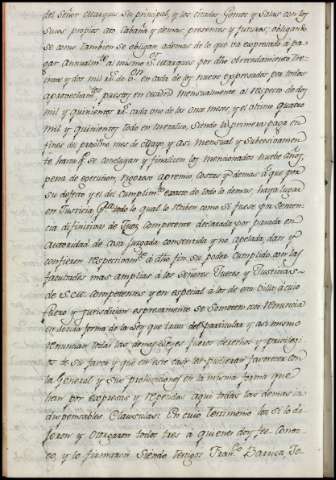 del Señor Marques Su principal, y los citados Gomez y Salas con los
suios propios a la Cabaña y demas, presentes y futuros; obligando
se como tambien se obligan ademas de lo que va expresado à pa
gar Annualm.te al mismo S.r Marques por dho Arrendamiento tre
inta y dos mil r.s de v.n en cada de los nueve expresados por todos
aprovecham.tos puestos en Madrid Mensualmente al respecto de dos
mil y quinientos r.s cada uno de los once meses, y el ultimo quatro
mil y quinientos todo en metalico, siendo la primera paga en
fines del proximo mes de Mayo y asi mensual y Subcesivamen
te hasta q.e se concluyan y finalicen los mencionados nueve años,
pena de execucion, rigoroso apremio Costas y demas à que por
su defecto y el del cumplim.to exacto de todo lo demas, haya lugar
en Justicia, q.e todo lo qual lo reciben como si fuese por Senten
cia difinitiva de Juez competente declarada por pasada en
autoridad de cosa juzgada consentida y no apelada, dan y
confieren respectivam.te à dho fin su poder cumplido con las
facultades mas amplias à los Señores Jueces y Justicias
de S. M. competentes y en especial à los de esta Villa à cuio
fuero y jurisdiccion expresamente se someten, con renuncia
en devida forma de la Ley que trata del particular y asi mismo
renuncian todas las demas leyes fueros derechos y privilegi
os de su favor y que en este caso les pudieran favorecer con
la General y sus prohibiciones en la misma forma que
dan por expresas y repetidas aqui todas las demas in
dispensables Clausulas: En cuio testimonio asi lo di
jeron y Otorgaron todos tres à quienes doy fee conoz
co, y lo firmaron siendo testigos Fran.co Barrera, Jo